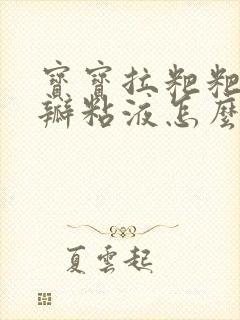 寶寶拉粑粑
瓣粘液怎麼
夏雲起